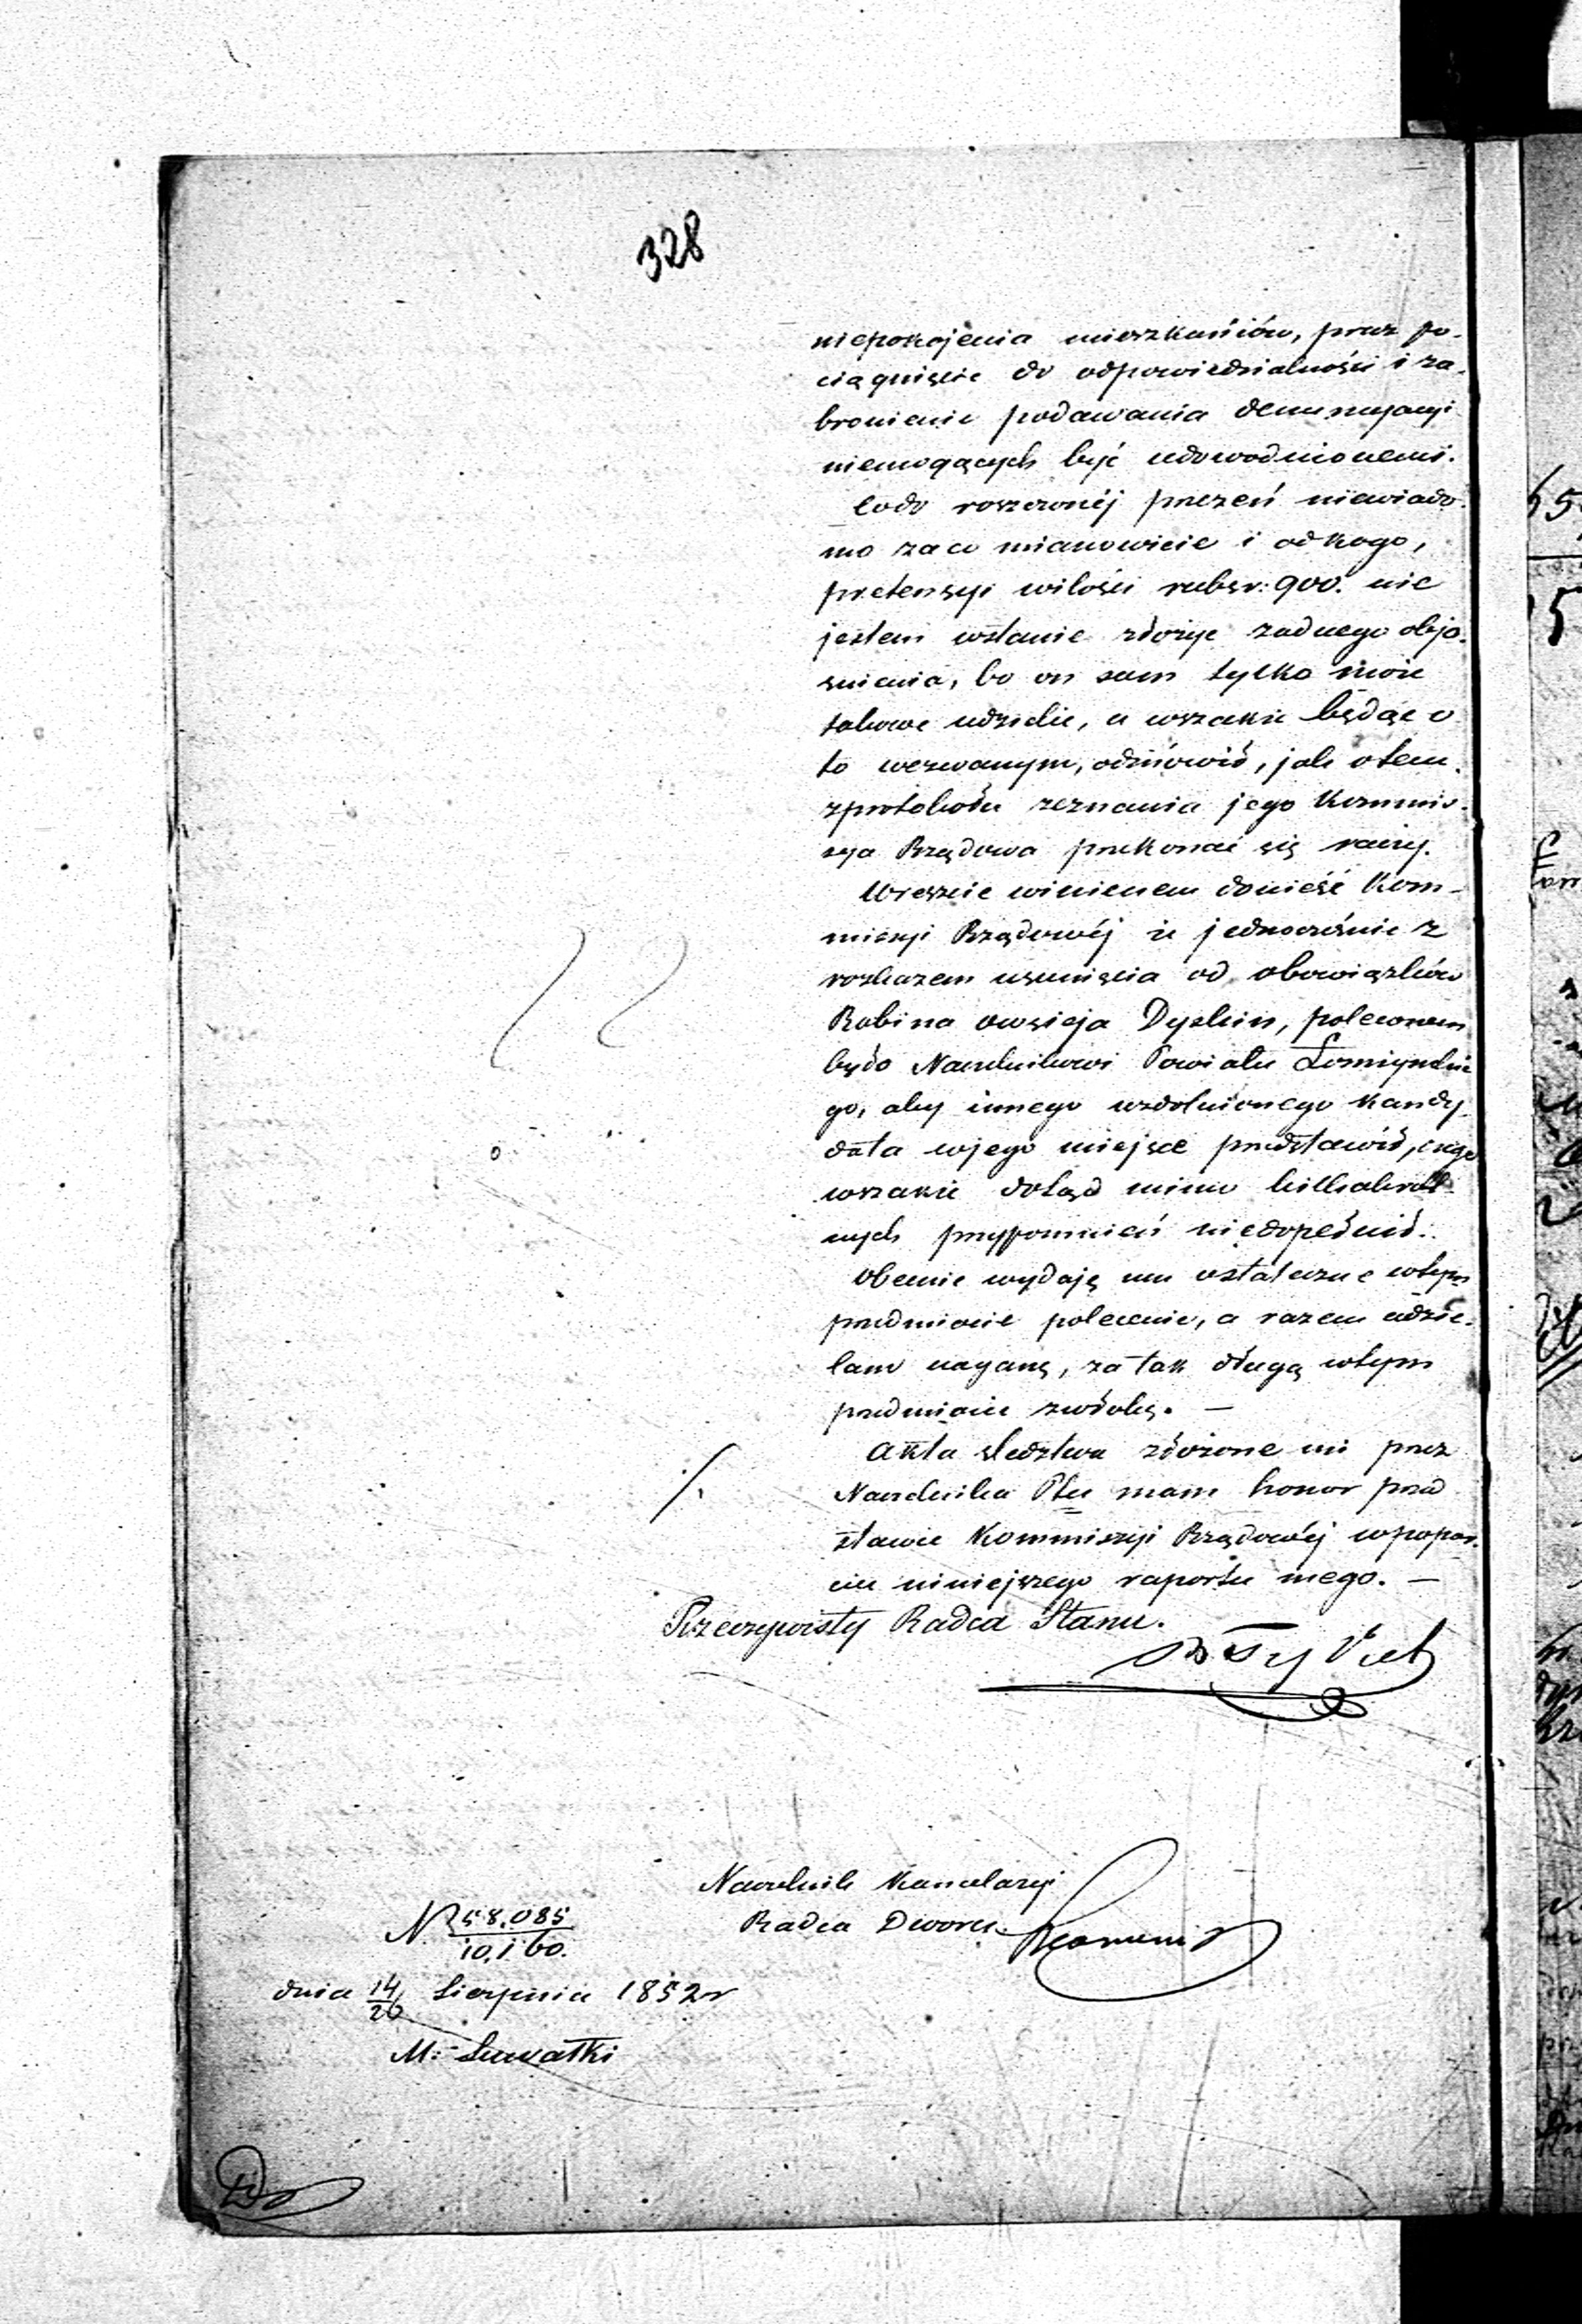 328
niepokojenia mieszkańców, przez po-
ciągnięcie do odpowiedzialności i za-
bronienie podawania denuncyacyi
niemogących być udowodnionemi.
Codo roszczonéj przezeń niewiado-
mo zaco mianowicie i odkogo,
pretensyi wilości rubsr: 900. nie
jestem wstanie złożyc żadnego objo-
śnienia, bo on sam tylko może
takowe udzielić, a wszakże będąc o
to wezwanym, odmówił, jak otem
zprotokółu zeznania jego Kommis-
sya Rządowa przekonać się raczy.
Wreszcie winienem donieść Kom-
missyi Rządowéj że jednocześnie z
rozkazem usunięcia od obowiązków
Rabina Owsieja Dyskin, poleconem
było Naczelnikowi Powiatu Łomżyńskie
go, aby innego uzdolnionego kandy-
data wjego miejsce przedstawił, czego
wszakże dotąd mimo kilkakrot-
nych przypomnień niedopełnił.
Obecnie wydaję mu ostateczne wtym
przedmiocie polecenie, a razem udzie-
lam naganę, za tak długą wtym
przedmiocie zwłokę. —
Akta śledztwa złożone mi przez
Naczelnika Ptu mam honor przed
stawić Kommissyi Rządowéj wpopar-
ciu niniejszego raportu mego. —
Rzeczywisty Radca Stanu.
Naczelnik Kancelaryi
Radca Dworu
N. 58,085
10,160.
dnia 14/26 Sierpnia 1852 r
M: Suwałki